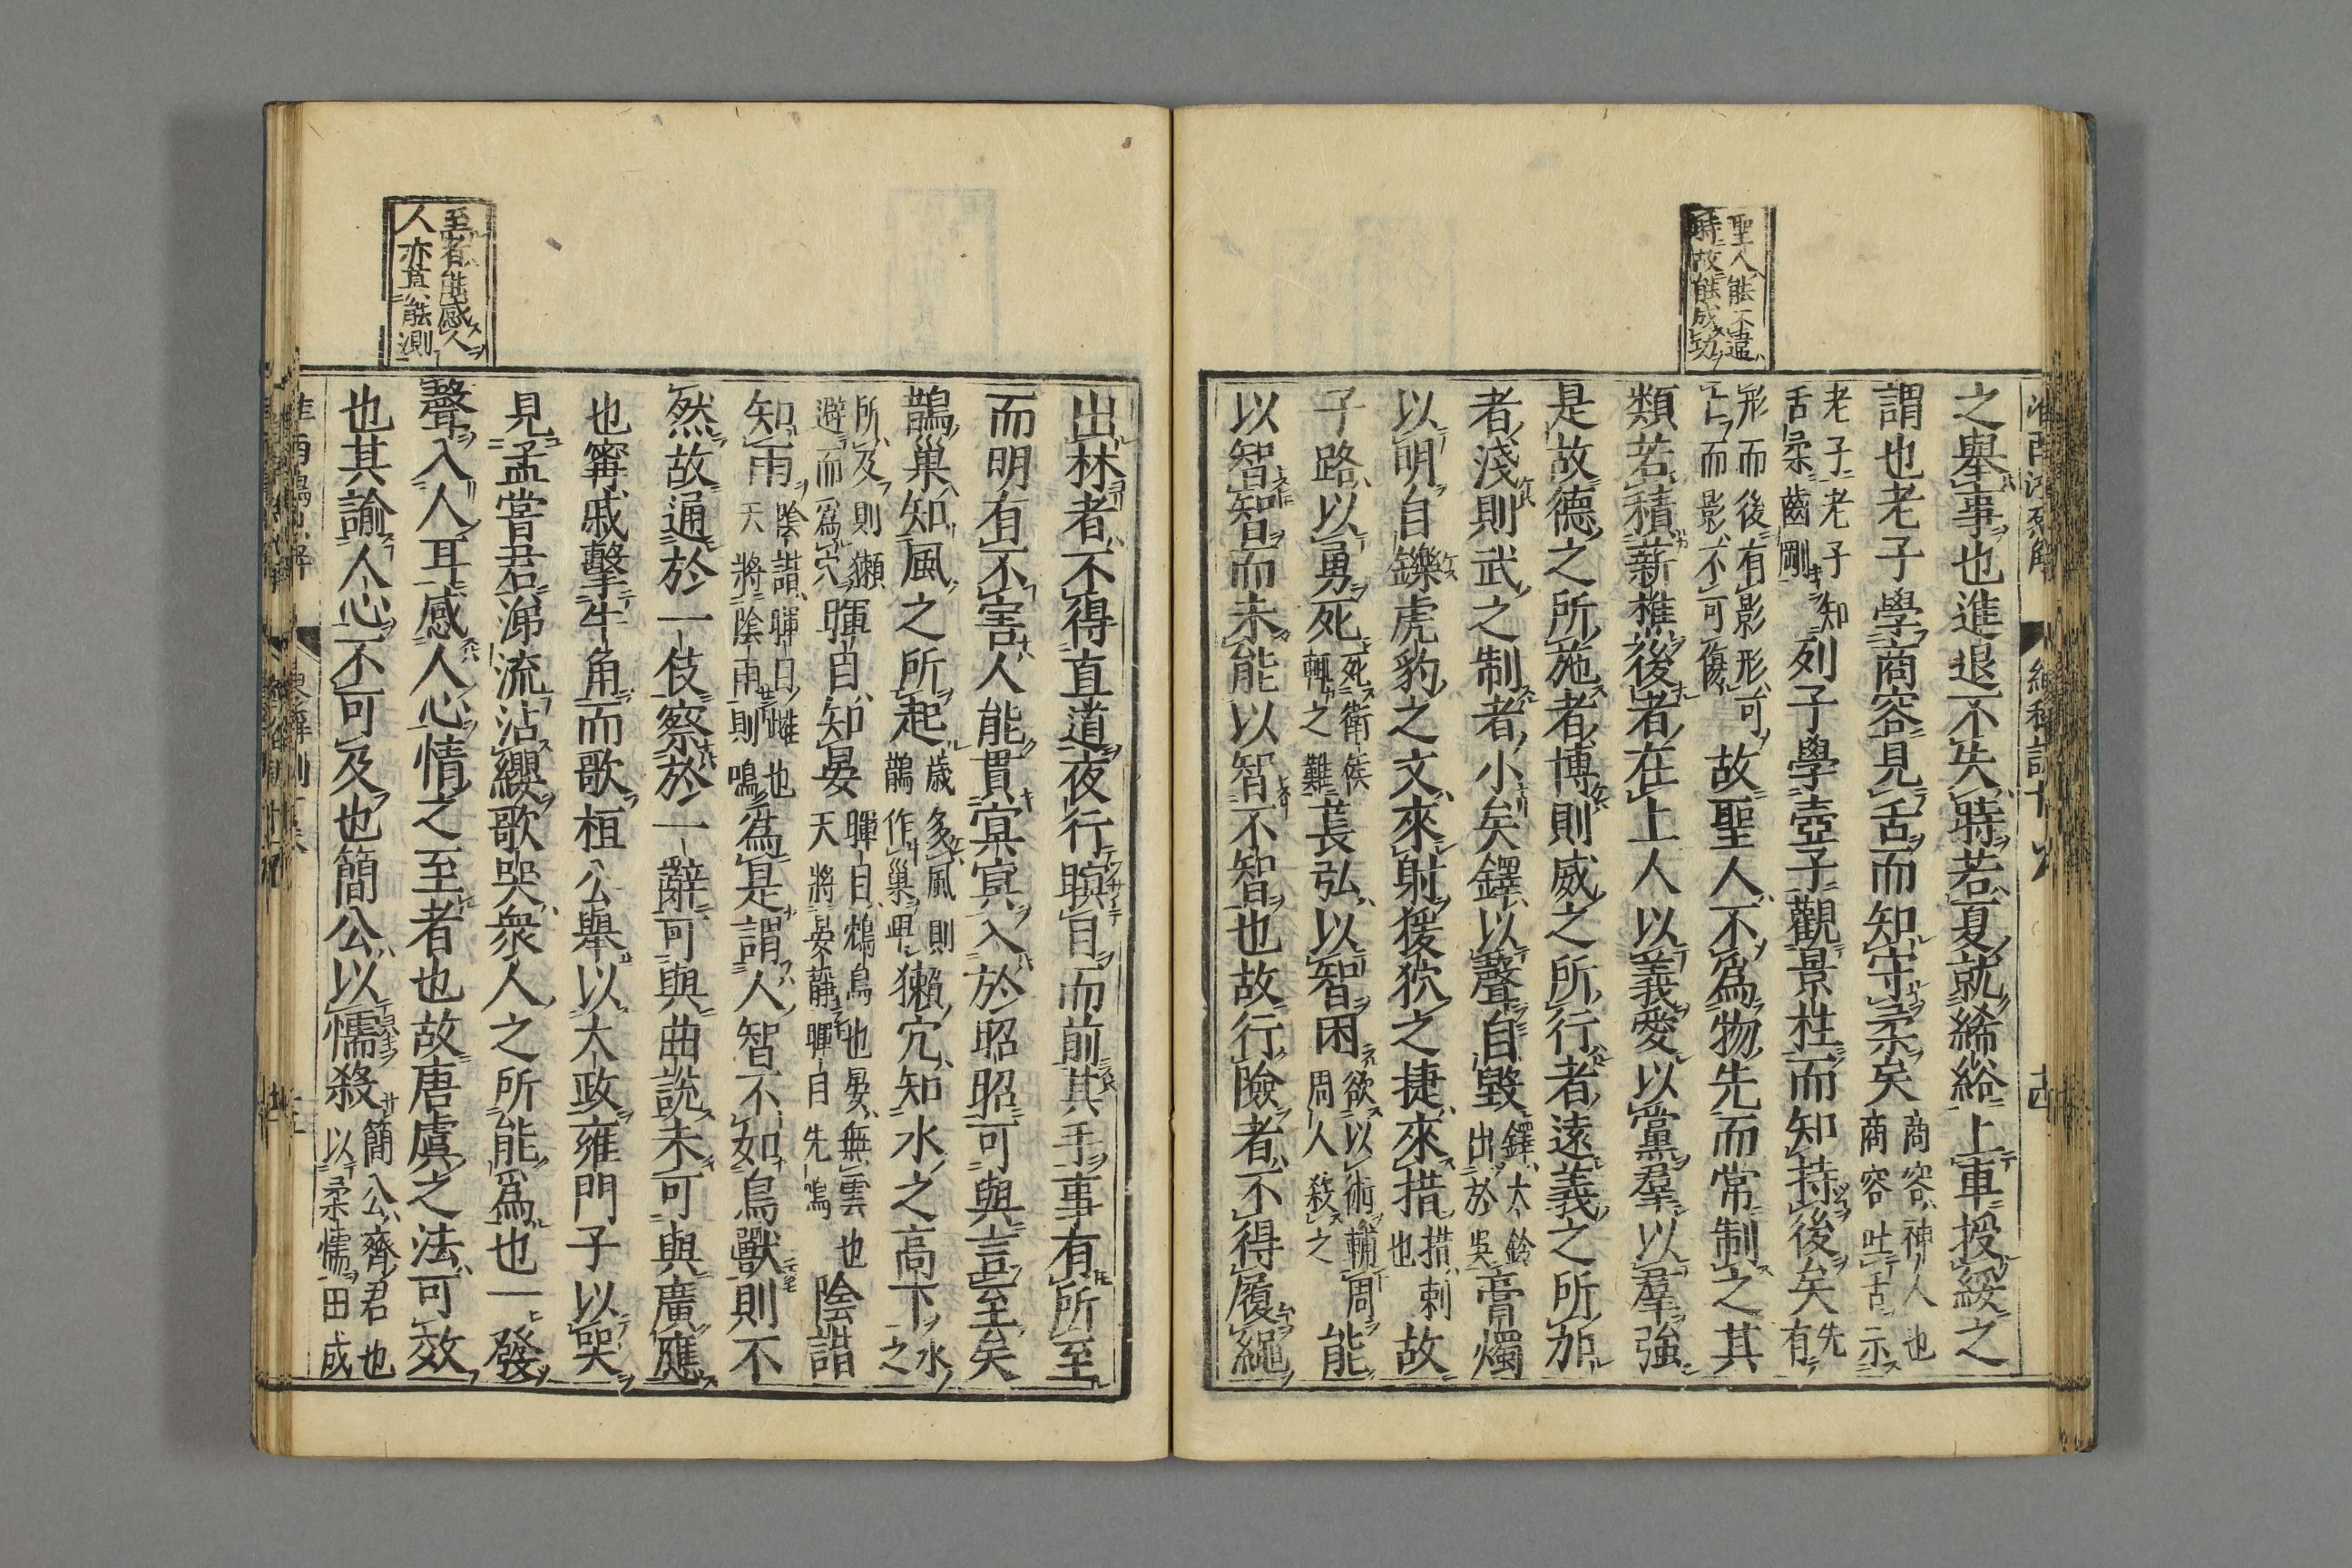 聖人能不違
時故能成功
之舉事也進退不失時若夏就絺綌上車授綏之
謂也老子學商容見舌而知守柔矣商容神人也商容吐舌示
老子老子知舌柔齒剛列子學壺子觀景柱而知持後矣先有
形而後有影形可亡而影不可傷故聖人不爲物先而常制之其
類若積薪樵後者在上人以義愛以黨羣以羣強
是故德之所施者博則威之所行者遠義之所加
者淺則武之制者小矣鐸以聲自毀鐸大鈴出於吳膏燭
以明自鑠虎豹之文來射猨狖之捷來措措刺也故
子路以勇死死衛侯輒之難萇弘以智困欲以術輔周周人殺之能
以智智而未能以智不智也故行險者不得履繩
至者能感人
人亦莫能測
出林者不得直道夜行瞑目而前其手事有所至
而明有不害人能貫冥冥入於昭昭可與言至矣
鵲巢知風之所起歲多風則鵲作巢卑獺穴知水之高下水之
所及則獺避而爲穴暉目知晏暉目鴆鳥也晏無雲也天將晏靜暉目先鳴陰諧
知雨陰諧暉日雌也天將陰雨則鳴爲是謂人智不如鳥獸則不
然故通於一伎察於一辭可與曲說未可與廣應
也甯戚擊牛角而歌桓公舉以大政雍門子以哭
見孟嘗君涕流沾纓歌哭衆人之所能爲也一發
聲入人耳感人心情之至者也故唐虞之法可效
也其諭人心不可及也簡公以懦殺簡公齊君也以柔懦田成